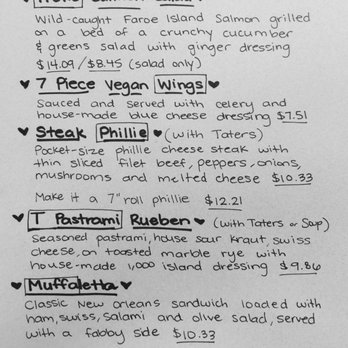 Wild-caught Faroe Island Salmon grilled
on a bed of a crunchy cucumber
& greens salad with ginger dressing
$14.09/$8.45 (salad only)
♥ 7 Piece Vegan Wings ♥
Sauced and served with celery and
house-made blue cheese dressing $7.51
♥ Steak Phillie ♥ (with Taters)
Pocket-size phillie cheese steak with
thin sliced filet beef, peppers, onions,
mushrooms and melted cheese $10.33
Make it a 7" roll phillie $12.21
♥ T Pastrami Rueben ♥ (with Taters or Soup)
Seasoned pastrami, house sour kraut, swiss
cheese, on toasted marble rye with
house-made 1,000 island dressing $9.86
♥ Muffaletta ♥
Classic New Orleans sandwich loaded with
ham, swiss, salami and olive salad, served
with a fabby side $10.33